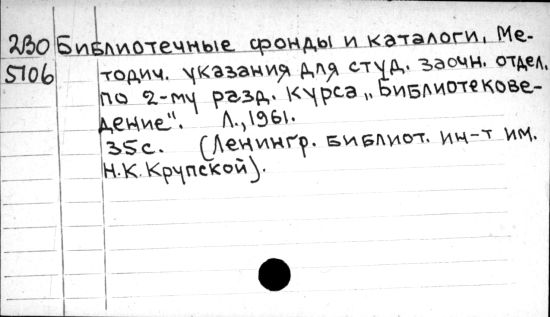 2В0 Библиотечные фонды и каталоги. Ме-
5106 тодич. указания для студ. заочн. отдел.
по 2-му разд. курса „Библиотекове-
дение". Л., 1961.
35с. (Ленингр. библиот. ин-т им.
Н.К.Крупской).